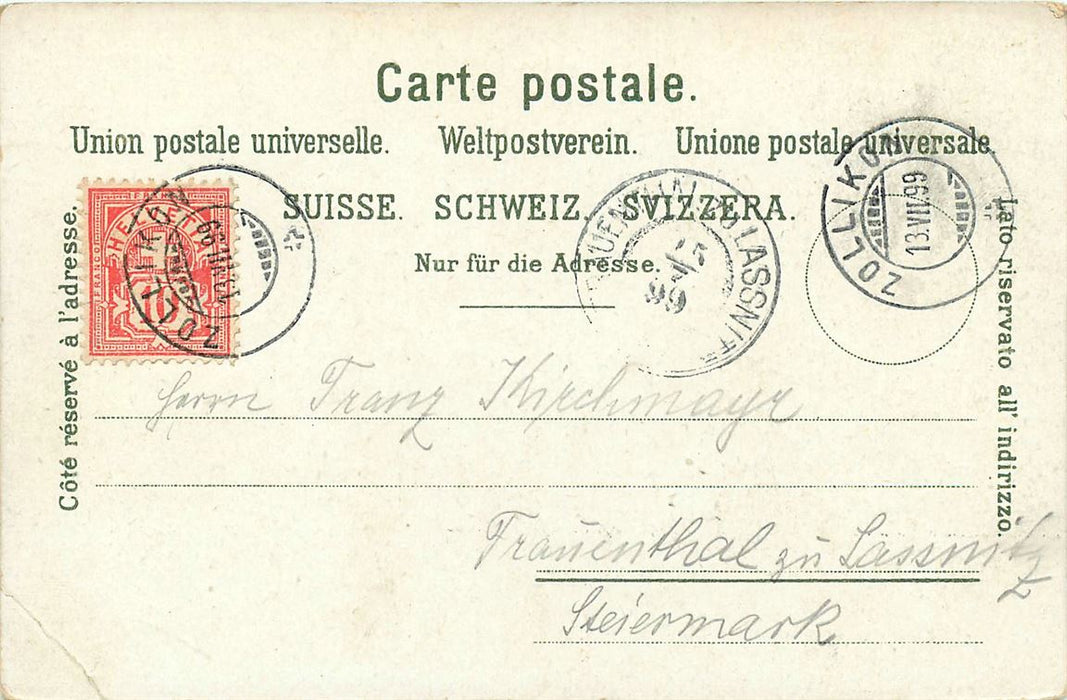 Carte postale.
Union postale universelle. Weltpostverein. Unione postale universale
SUISSE. SCHWEIZ. SVIZZERA.
Nur für die Adresse.
Côté réservé à l'adresse.
Lato riservato all' indirizzo.
FRANCO
HELVETIA
10
ZOLLIKON
ZOLLIKON
13.VII.99
LASSNITZ
15
99
Herrn Franz Kirchmayr
Frauenthal zu Lassnitz
Steiermark